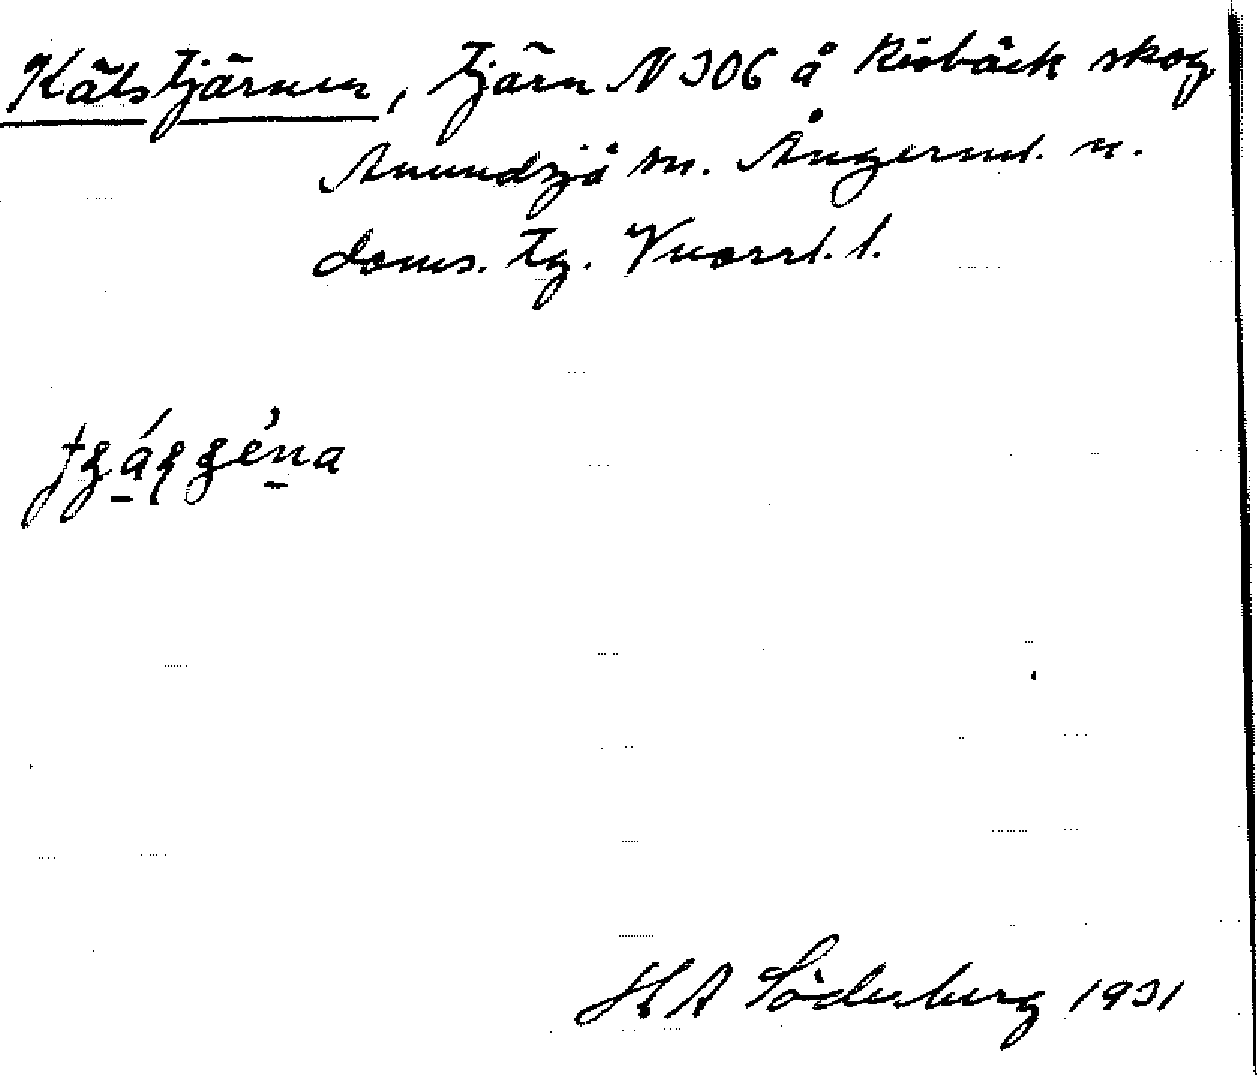 Kälstjärnen, tjärn N 306 å Risbäck skog
Anundsjö sn. Ångerml. n.
doms. tg. Vuorrl. l.
H A Söderberg 1931